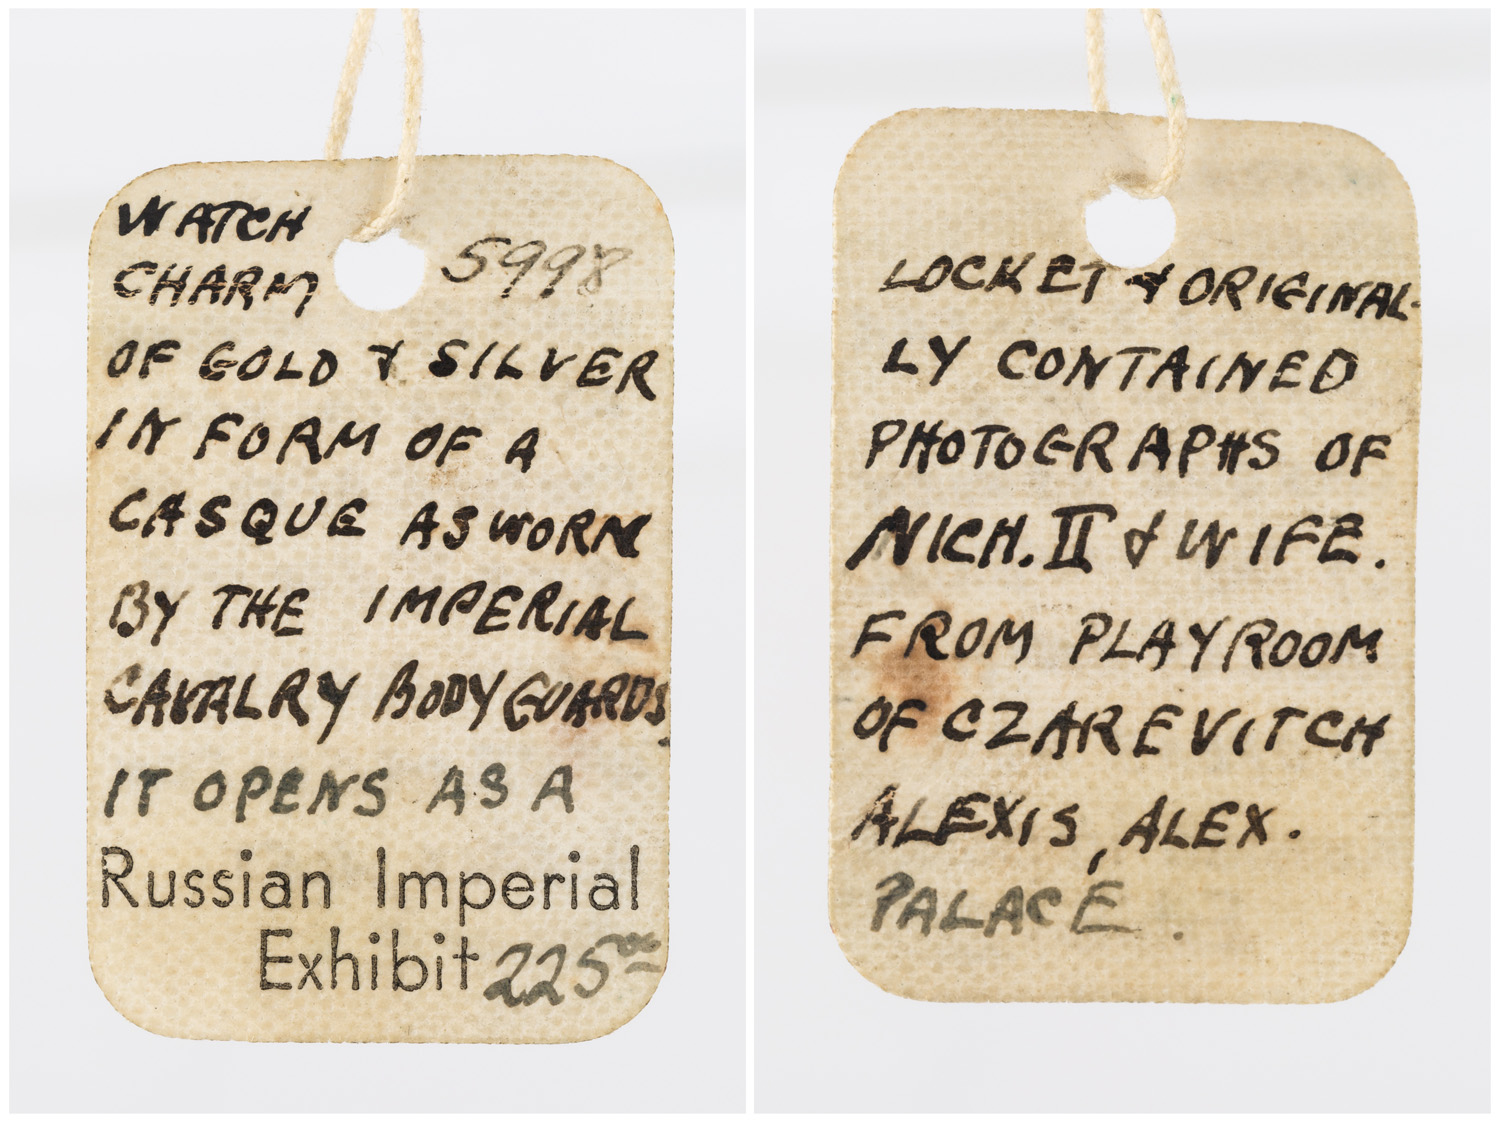 WATCH
CHARM 5998
OF GOLD & SILVER
IN FORM OF A
CASQUE AS WORN
BY THE IMPERIAL
CAVALRY BODYGUARDS,
IT OPENS AS A
Russian Imperial
Exhibit 225⁰⁰
LOCKET & ORIGINAL-
LY CONTAINED
PHOTOGRAPHS OF
NICH. II & WIFE.
FROM PLAYROOM
OF CZAREVITCH
ALEXIS, ALEX.
PALACE.